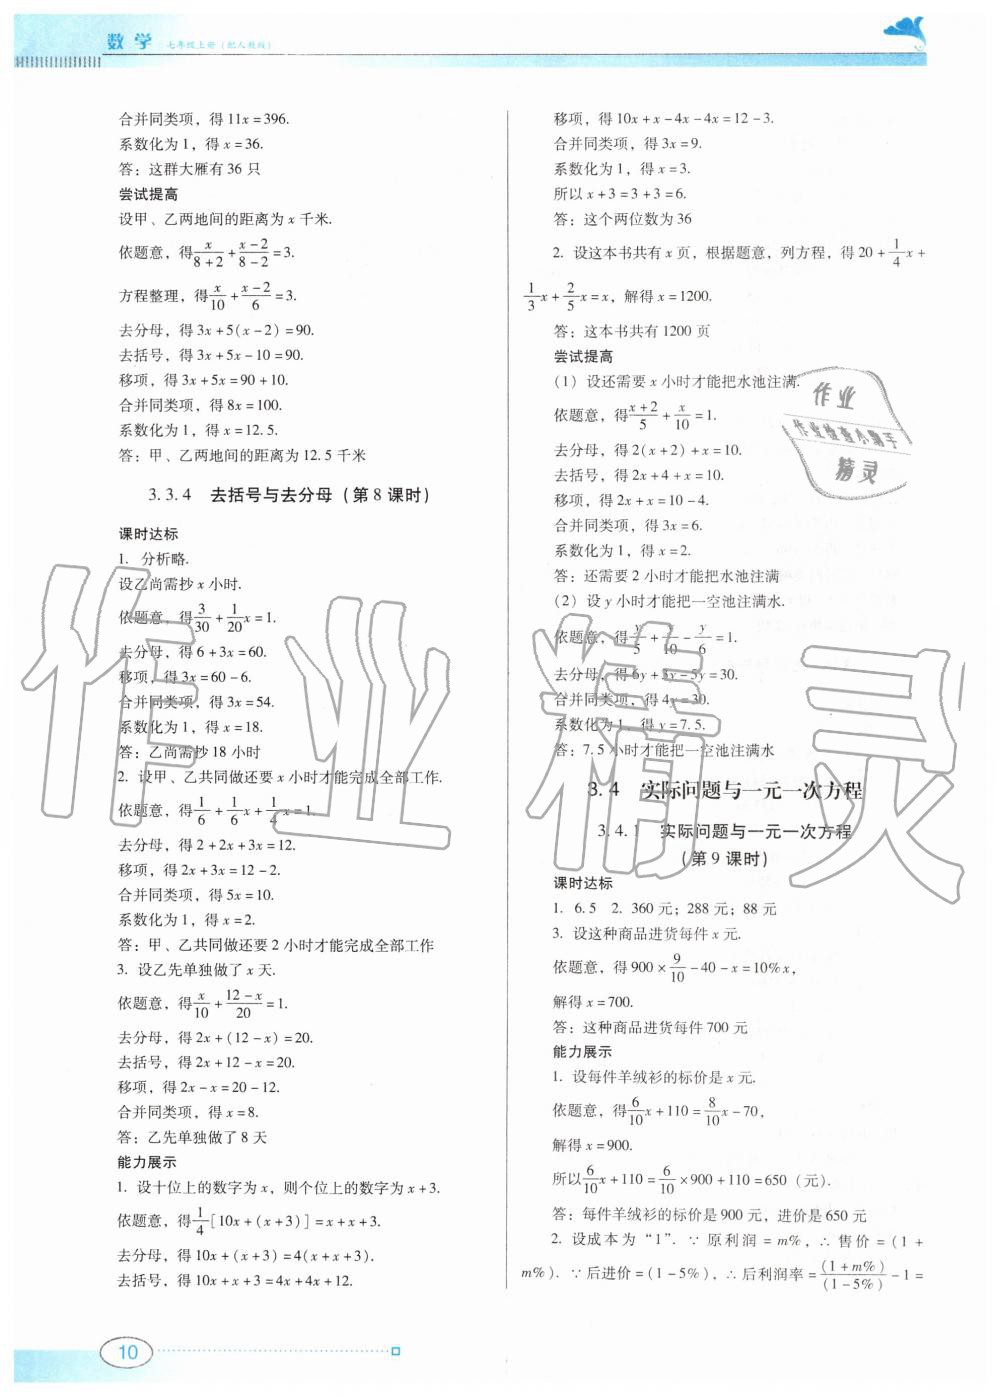 数学 七年级上册(配人教版)
合并同类项，得 11x=396.
系数化为 1，得 x=36.
答：这群大雁有 36 只
尝试提高
设甲、乙两地间的距离为 x 千米.
依题意，得x/(8+2)+(x-2)/(8-2)=3.
方程整理，得x/10+(x-2)/6=3.
去分母，得 3x+5(x-2)=90.
去括号，得 3x+5x-10=90.
移项，得 3x+5x=90+10.
合并同类项，得 8x=100.
系数化为 1，得 x=12.5.
答：甲、乙两地间的距离为 12.5 千米
3.3.4 去括号与去分母(第 8 课时)
课时达标
1. 分析略.
设乙尚需抄 x 小时.
依题意，得3/30+1/20x=1.
去分母，得 6+3x=60.
移项，得 3x=60-6.
合并同类项，得 3x=54.
系数化为 1，得 x=18.
答：乙尚需抄 18 小时
2. 设甲、乙共同做还要 x 小时才能完成全部工作.
依题意，得1/6+1/6x+1/4x=1.
去分母，得 2+2x+3x=12.
移项，得 2x+3x=12-2.
合并同类项，得 5x=10.
系数化为 1，得 x=2.
答：甲、乙共同做还要 2 小时才能完成全部工作
3. 设乙先单独做了 x 天.
依题意，得x/10+(12-x)/20=1.
去分母，得 2x+(12-x)=20.
去括号，得 2x+12-x=20.
移项，得 2x-x=20-12.
合并同类项，得 x=8.
答：乙先单独做了 8 天
能力展示
1. 设十位上的数字为 x，则个位上的数字为 x+3.
依题意，得1/4[10x+(x+3)]=x+x+3.
去分母，得 10x+(x+3)=4(x+x+3).
去括号，得 10x+x+3=4x+4x+12.
移项，得 10x+x-4x-4x=12-3.
合并同类项，得 3x=9.
系数化为 1，得 x=3.
所以 x+3=3+3=6.
答：这个两位数为 36
2. 设这本书共有 x 页，根据题意，列方程，得 20+1/4x+
1/3x+2/5x=x，解得 x=1200.
答：这本书共有 1200 页
尝试提高
(1) 设还需要 x 小时才能把水池注满.
依题意，得(x+2)/5+x/10=1.
去分母，得 2(x+2)+x=10.
去括号，得 2x+4+x=10.
移项，得 2x+x=10-4.
合并同类项，得 3x=6.
系数化为 1，得 x=2.
答：还需要 2 小时才能把水池注满
(2) 设 y 小时才能把一空池注满水.
依题意，得y/5+y/10-y/6=1.
去分母，得 6y+3y-5y=30.
合并同类项，得 4y=30.
系数化为 1，得 y=7.5.
答：7.5 小时才能把一空池注满水
3.4 实际问题与一元一次方程
3.4.1 实际问题与一元一次方程
(第 9 课时)
课时达标
1. 6.5 2. 360 元；288 元；88 元
3. 设这种商品进货每件 x 元.
依题意，得 900×9/10-40-x=10%x，
解得 x=700.
答：这种商品进货每件 700 元
能力展示
1. 设每件羊绒衫的标价是 x 元.
依题意，得6/10x+110=8/10x-70，
解得 x=900.
所以6/10x+110=6/10×900+110=650（元）.
答：每件羊绒衫的标价是 900 元，进价是 650 元
2. 设成本为“1”. ∵原利润=m%，∴售价=(1+
m%). ∵后进价=(1-5%)，∴后利润率=(1+m%)/(1-5%)-1=
10
作业
作业检查小帮手
精灵
作业精灵